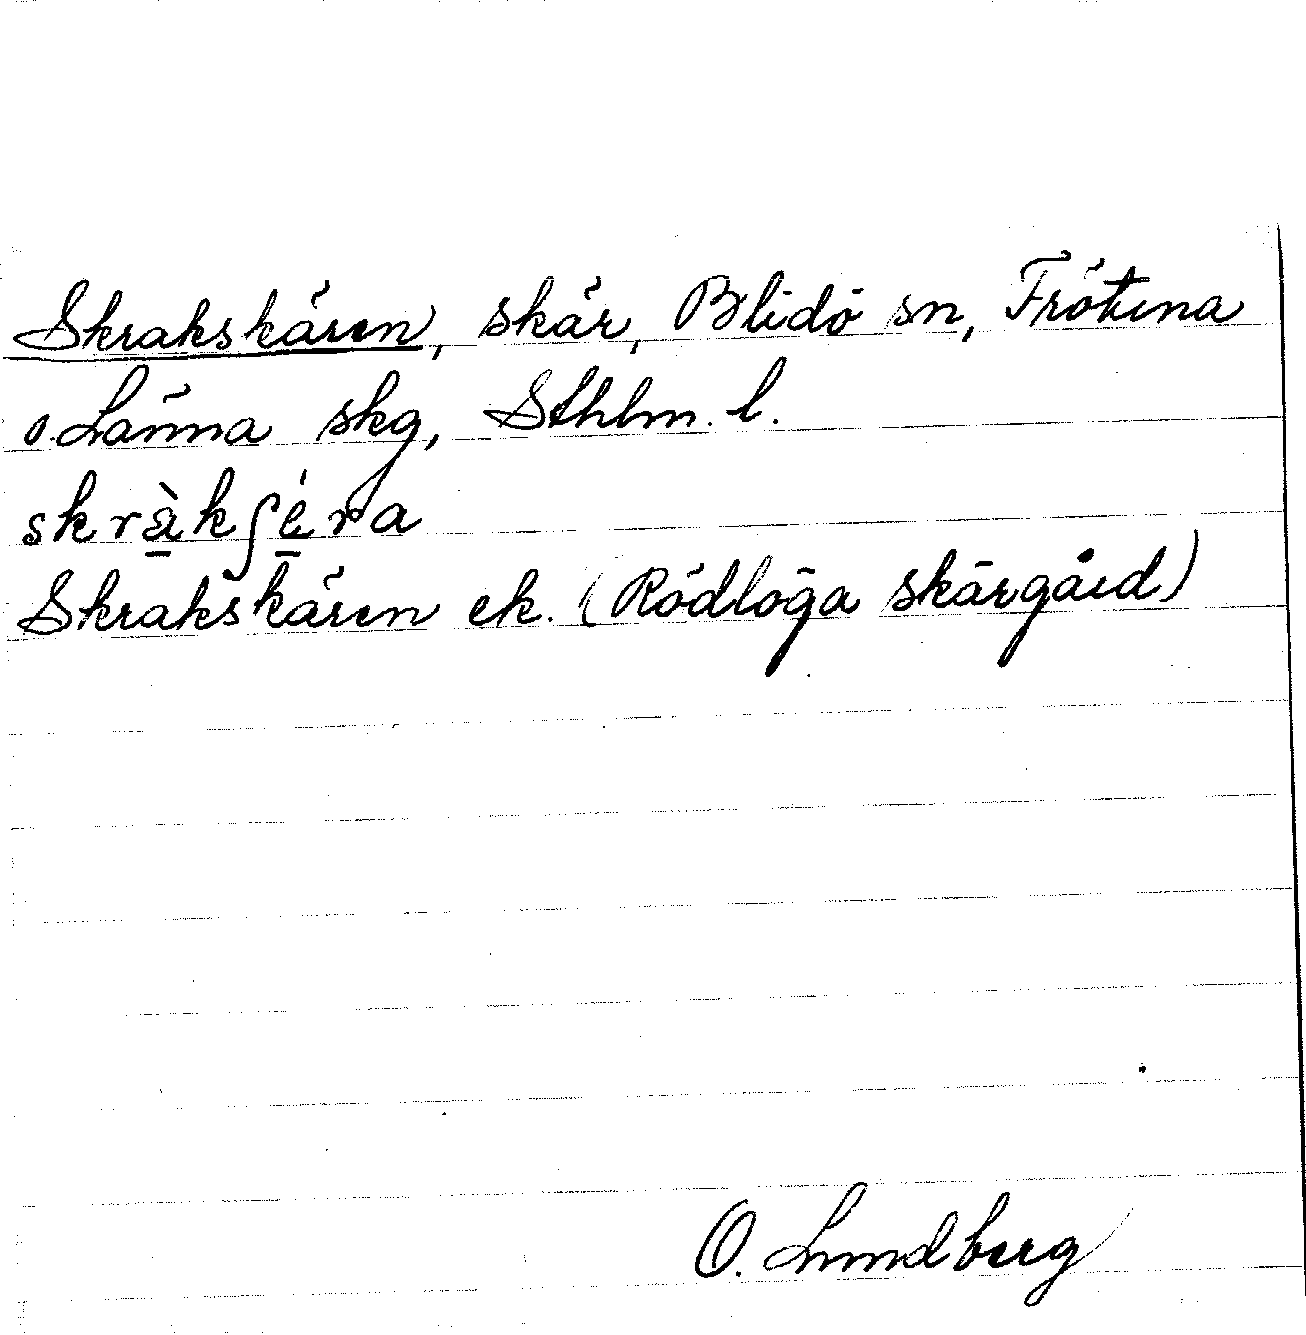 Skrakskären, skär, Blidö sn, Frötuna
o. Länna skg, Sthlm. l.
skrà̱kʃé̱ra
Skrakskären ek. (Rödlöga skärgård)
O. Lundberg